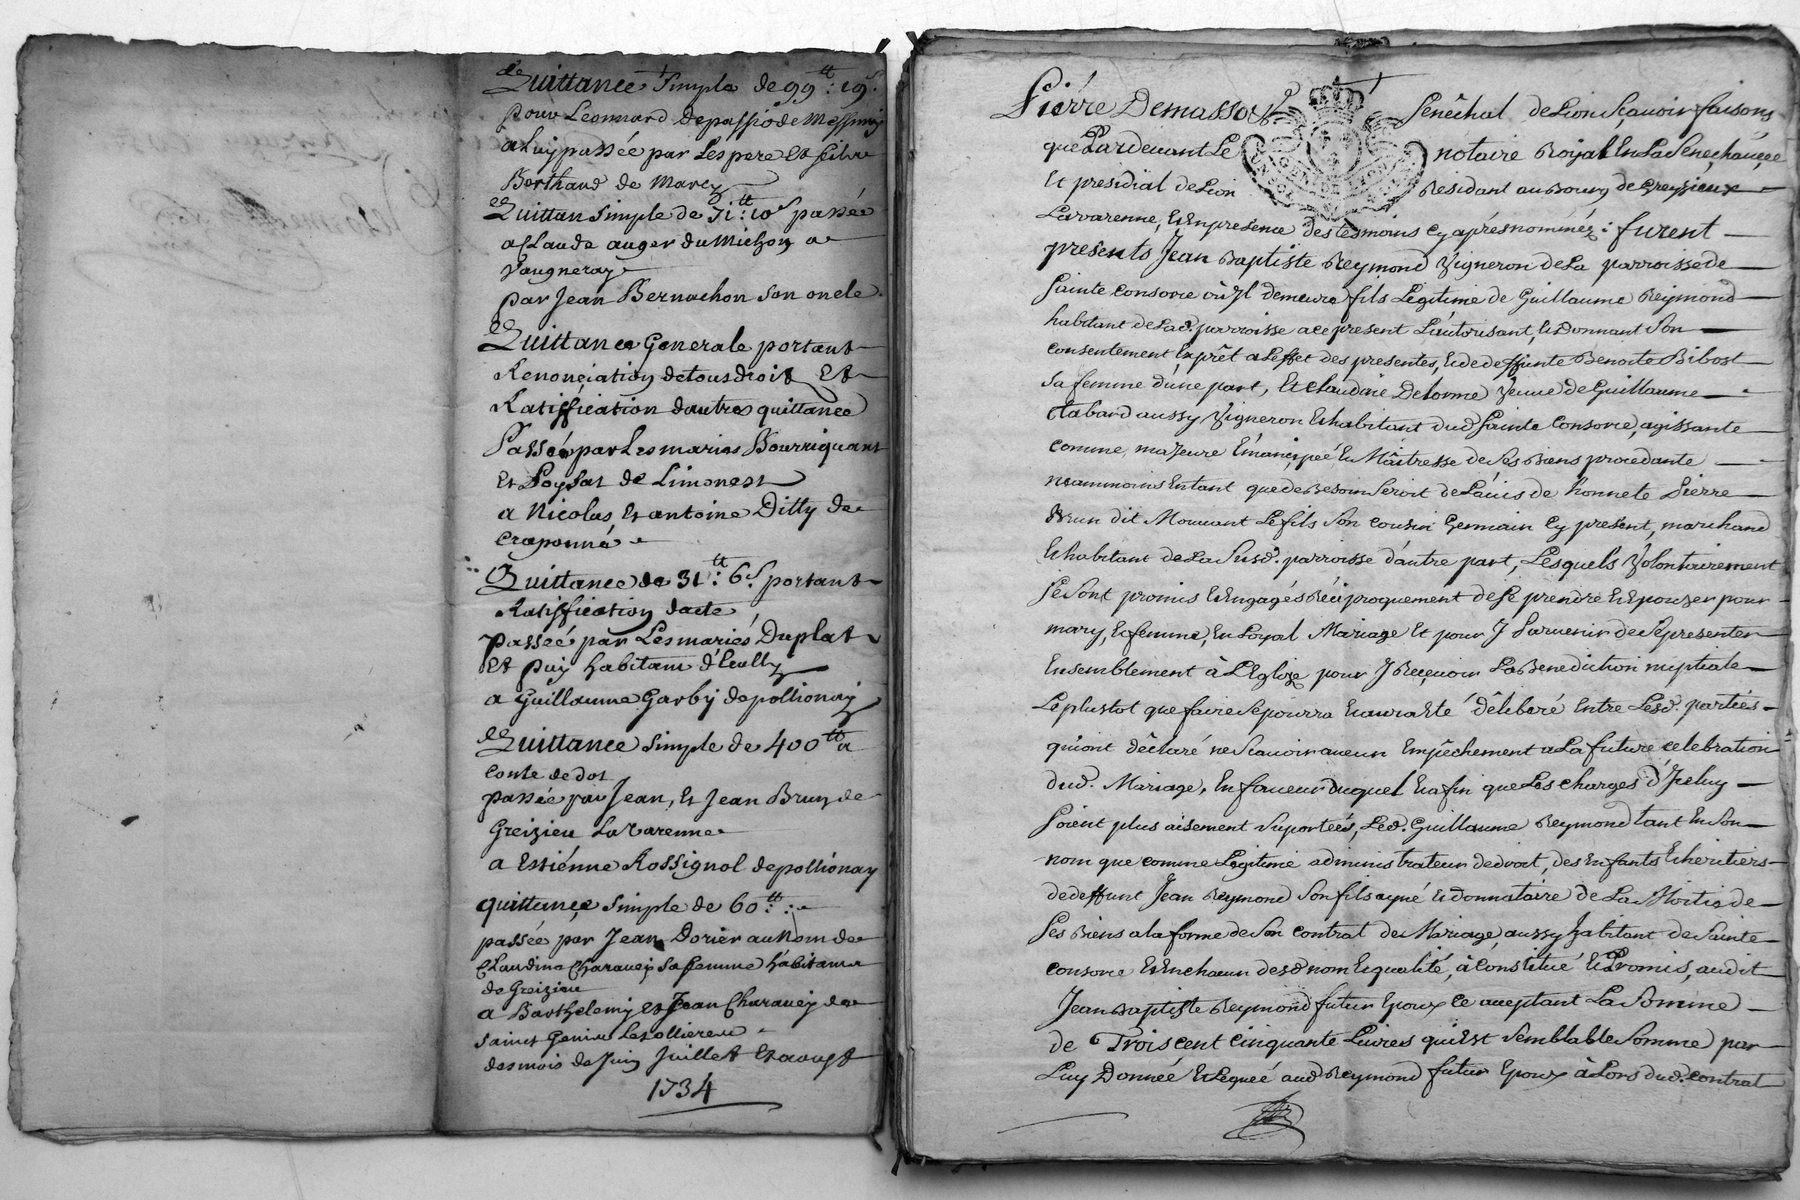 Quittance simple de 99tt: 19s
pour Leonnard depassio de Messimy
a luy passée par Les pere Et fils
Berthaud de Marcy
Quittan simple de 71tt: 10s passée
a Claude auger du Michon a
Vaugneray
par Jean Bernachon son oncle
Quittance Generale portant
Renonciation de tous droit Et
Ratiffication dautres quittance
Passée par Les maries Bourriquant
Et Poysat de Limonest
a Nicolas Et antoine Ditty de
craponne
Quittance de 31tt: 6s portant
Ratiffication dacte
passée par Les mariés Duplat
Et puy habitant d'Eculy
a Guillaume Garby de pollionay
Quittance simple de 400tt a
conte de dot
passée par Jean, Et Jean Brun de
Greizieu La Varenne
a Estiénne Rossignol de pollionay
quittance simple de 60tt:
passée par Jean Dorier au Nom de
Claudine Charavey sa femme habitante
de Greizieu
a Barthelemy et Jean Charavey de
saint Genis Les ollieres
des mois de Juin Juillet Et aoust
1734
Pierre Demasso Senêchal de Lion Sçavoir faisons
que Pardevant Le notaire Royal En La Senechaucée
Et presidial de Lion Residant au Bourg de Greyzieux
La varenne, Et En presence des tesmoins cy aprés nominéz: furent
presents Jean Baptiste Reymond Vigneron de La parroisse de
Sainte Consorce où Jl demeure fils Legitime de Guillaume Reymond
habitant de Lad. parroisse a ce present L'autorisant, Et donnant Son
consentement Exprêt a Leffet des presentes, Et de deffunte Benoite Bibost
Sa femme d'une part, Et claudine Delorme Veuve de Guillaume
Tabard aussy Vigneron Et habitant dud Sainte Consorce, agissante
comme majeure Emancipée Et Maîtresse de Ses Biens procedante
neammoins En tant que de Besoin Seroit de L'avis de honnete Pierre
Brun dit Mouvant Le fils Son Cousin Germain Cy present, marchand
Et habitant de La Susd. parroisse d'autre part, Lesquels Volontairement
Se Sont promis Et Engagés Réciproquement de Se prendre Et Epouzer pour
mary, Et femme, En Loyal Mariage Et pour J Parvenir de Se presenter
Ensemblement à L'Eglize pour J Reçevoir La Benediction nuptiale
Le plustot que faire Se pourra Et aura Eté délibéré Entre Lesd. partiés
qui ont dêclaré ne Scavoir aucun Empêchement a La future celebration
dud. Mariage, En faveur duquel Et afin que Les charges d'Jceluy
Soient plus aisement Suportées, Led. Guillaume Reymond tant En Son
nom que comme Legitime administrateur de droit, des Enfants Et heritiers
de deffunt Jean Reymond Son fils ayné Et donnataire de La Moitie de
Ses Biens a la forme de Son contrat de Mariage, aussy habitant de Sainte
Consorce Et En chacun desd nom Et qualité, à Constitué Et Promis, audit
Jean Baptiste Reymond futur Epoux ce acceptant La Somme
de Trois cent Cinquante Livres qui Est Semblable Somme par
Luy Donneé Et Legueé aud Reymond futur Epoux à Lors dud. contrat